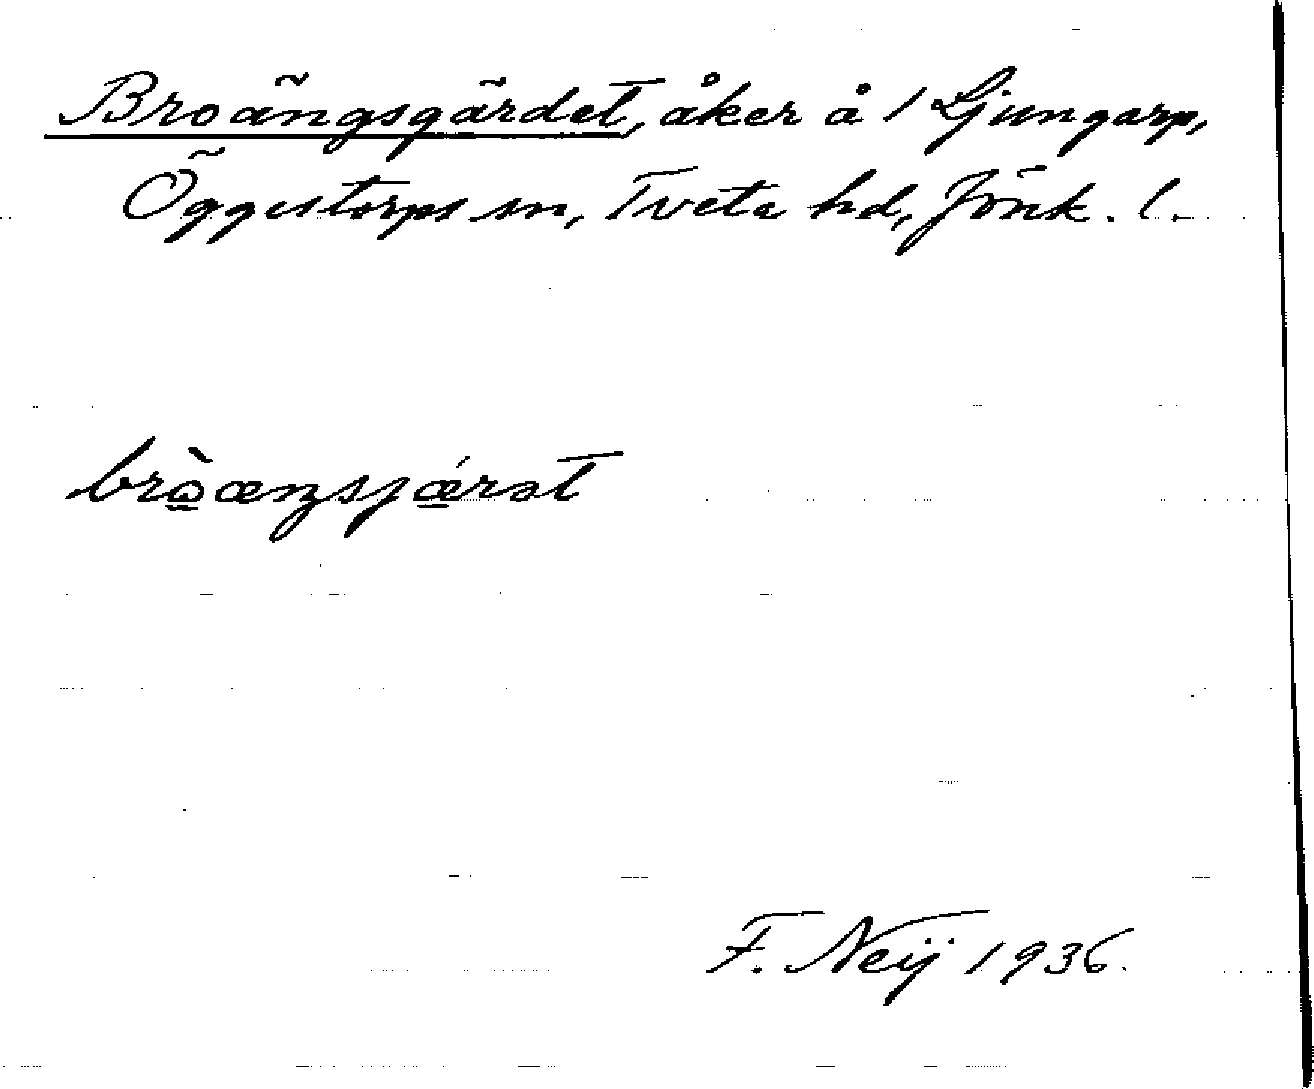 Broängsgärdet, åker å 1 Ljungarp,
Öggestorps sn, Tveta hd, Jönk. l.
brò̱æŋsjǽ̱rət
F. Neij 1936.